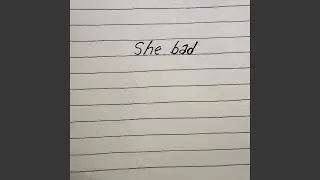 She bad